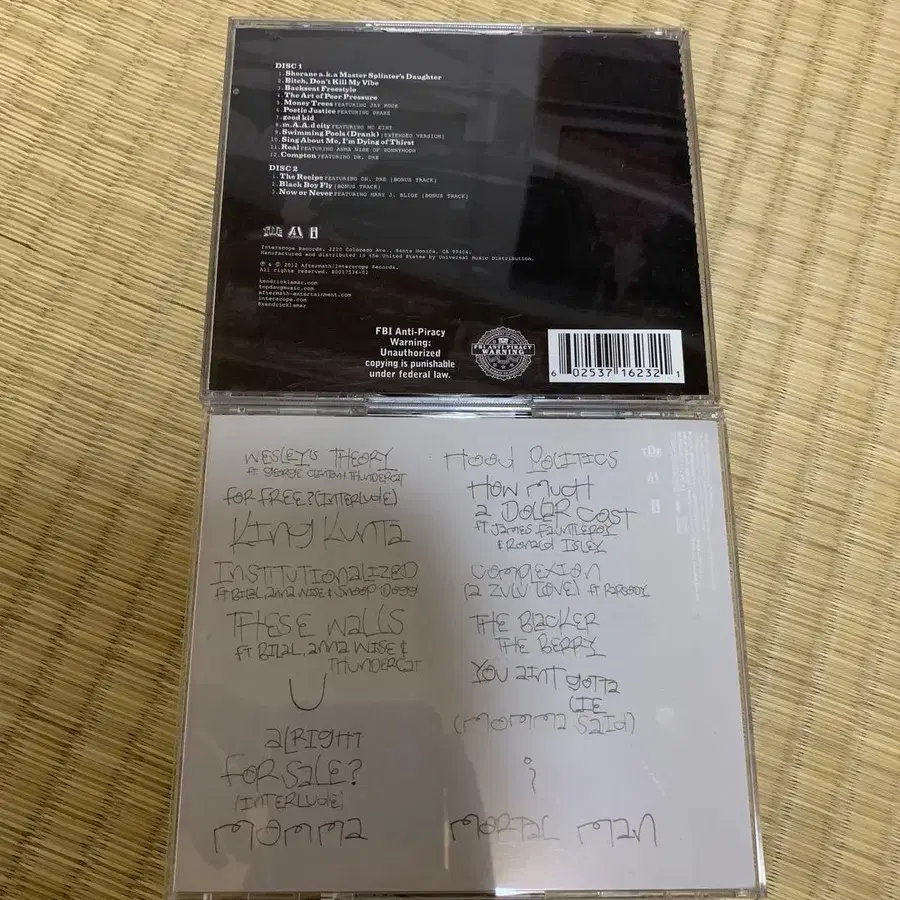 DISC 1
1. Sherane a.k.a Master Splinter's Daughter
2. Bitch, Don't Kill My Vibe
3. Backseat Freestyle
4. The Art of Peer Pressure
5. Money Trees FEATURING JAY ROCK
6. Poetic Justice FEATURING DRAKE
7. good kid
8. m.A.A.d city FEATURING MC EIHT
9. Swimming Pools (Drank) [EXTENDED VERSION]
10. Sing About Me, I'm Dying of Thirst
11. Real FEATURING ANNA WISE OF SONNYMOON
12. Compton FEATURING DR. DRE
DISC 2
1. The Recipe FEATURING DR. DRE [BONUS TRACK]
2. Black Boy Fly [BONUS TRACK]
3. Now or Never FEATURING MARY J. BLIGE [BONUS TRACK]
TDE
Interscope Records, 2220 Colorado Ave., Santa Monica, CA 90404.
Manufactured and distributed in the United States by Universal Music Distribution.
℗ & © 2012 Aftermath/Interscope Records.
All rights reserved. B0017534-02
kendricklamar.com
topdawgmusic.com
aftermath-entertainment.com
interscope.com
@kendricklamar
FBI Anti-Piracy
Warning:
Unauthorized
copying is punishable
under federal law.
FBI ANTI-PIRACY
WARNING
6 02537 16232 1
WESLEY'S THEORY
ft GEORGE CLINTON & THUNDERCAT
FOR FREE? (INTERLUDE)
KING KUNTA
INSTITUTIONALIZED
ft BILAL, anna WISE & SNOOP DOGG
THESE WALLS
ft BILAL, anna WISE &
THUNDERCAT
U
aLRIGHT
FOR SALE?
(INTERLUDE)
MOMMA
HOOD POLITICS
HOW MUCH
a DOLLAR COST
ft. JAMES FAUNTLEROY
& RONALD ISLEY
COMPLEXION
(a ZULU LOVE) ft RAPSODY
THE BLACKER
THE BERRY
YOU aINT GOTTA
LIE
(MOMMA SAID)
i
MORTAL MAN
TDE